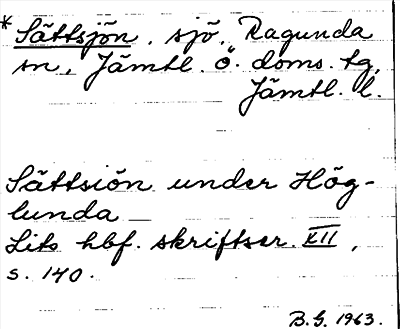 * Sättsjön. sjö. Ragunda
sn, Jämtl. Ö. doms. tg,
Jämtl. l.
Sättsiön under Hög-
lunda
Lits hbf. skriftser. XII,
s. 140.
B.G. 1963.